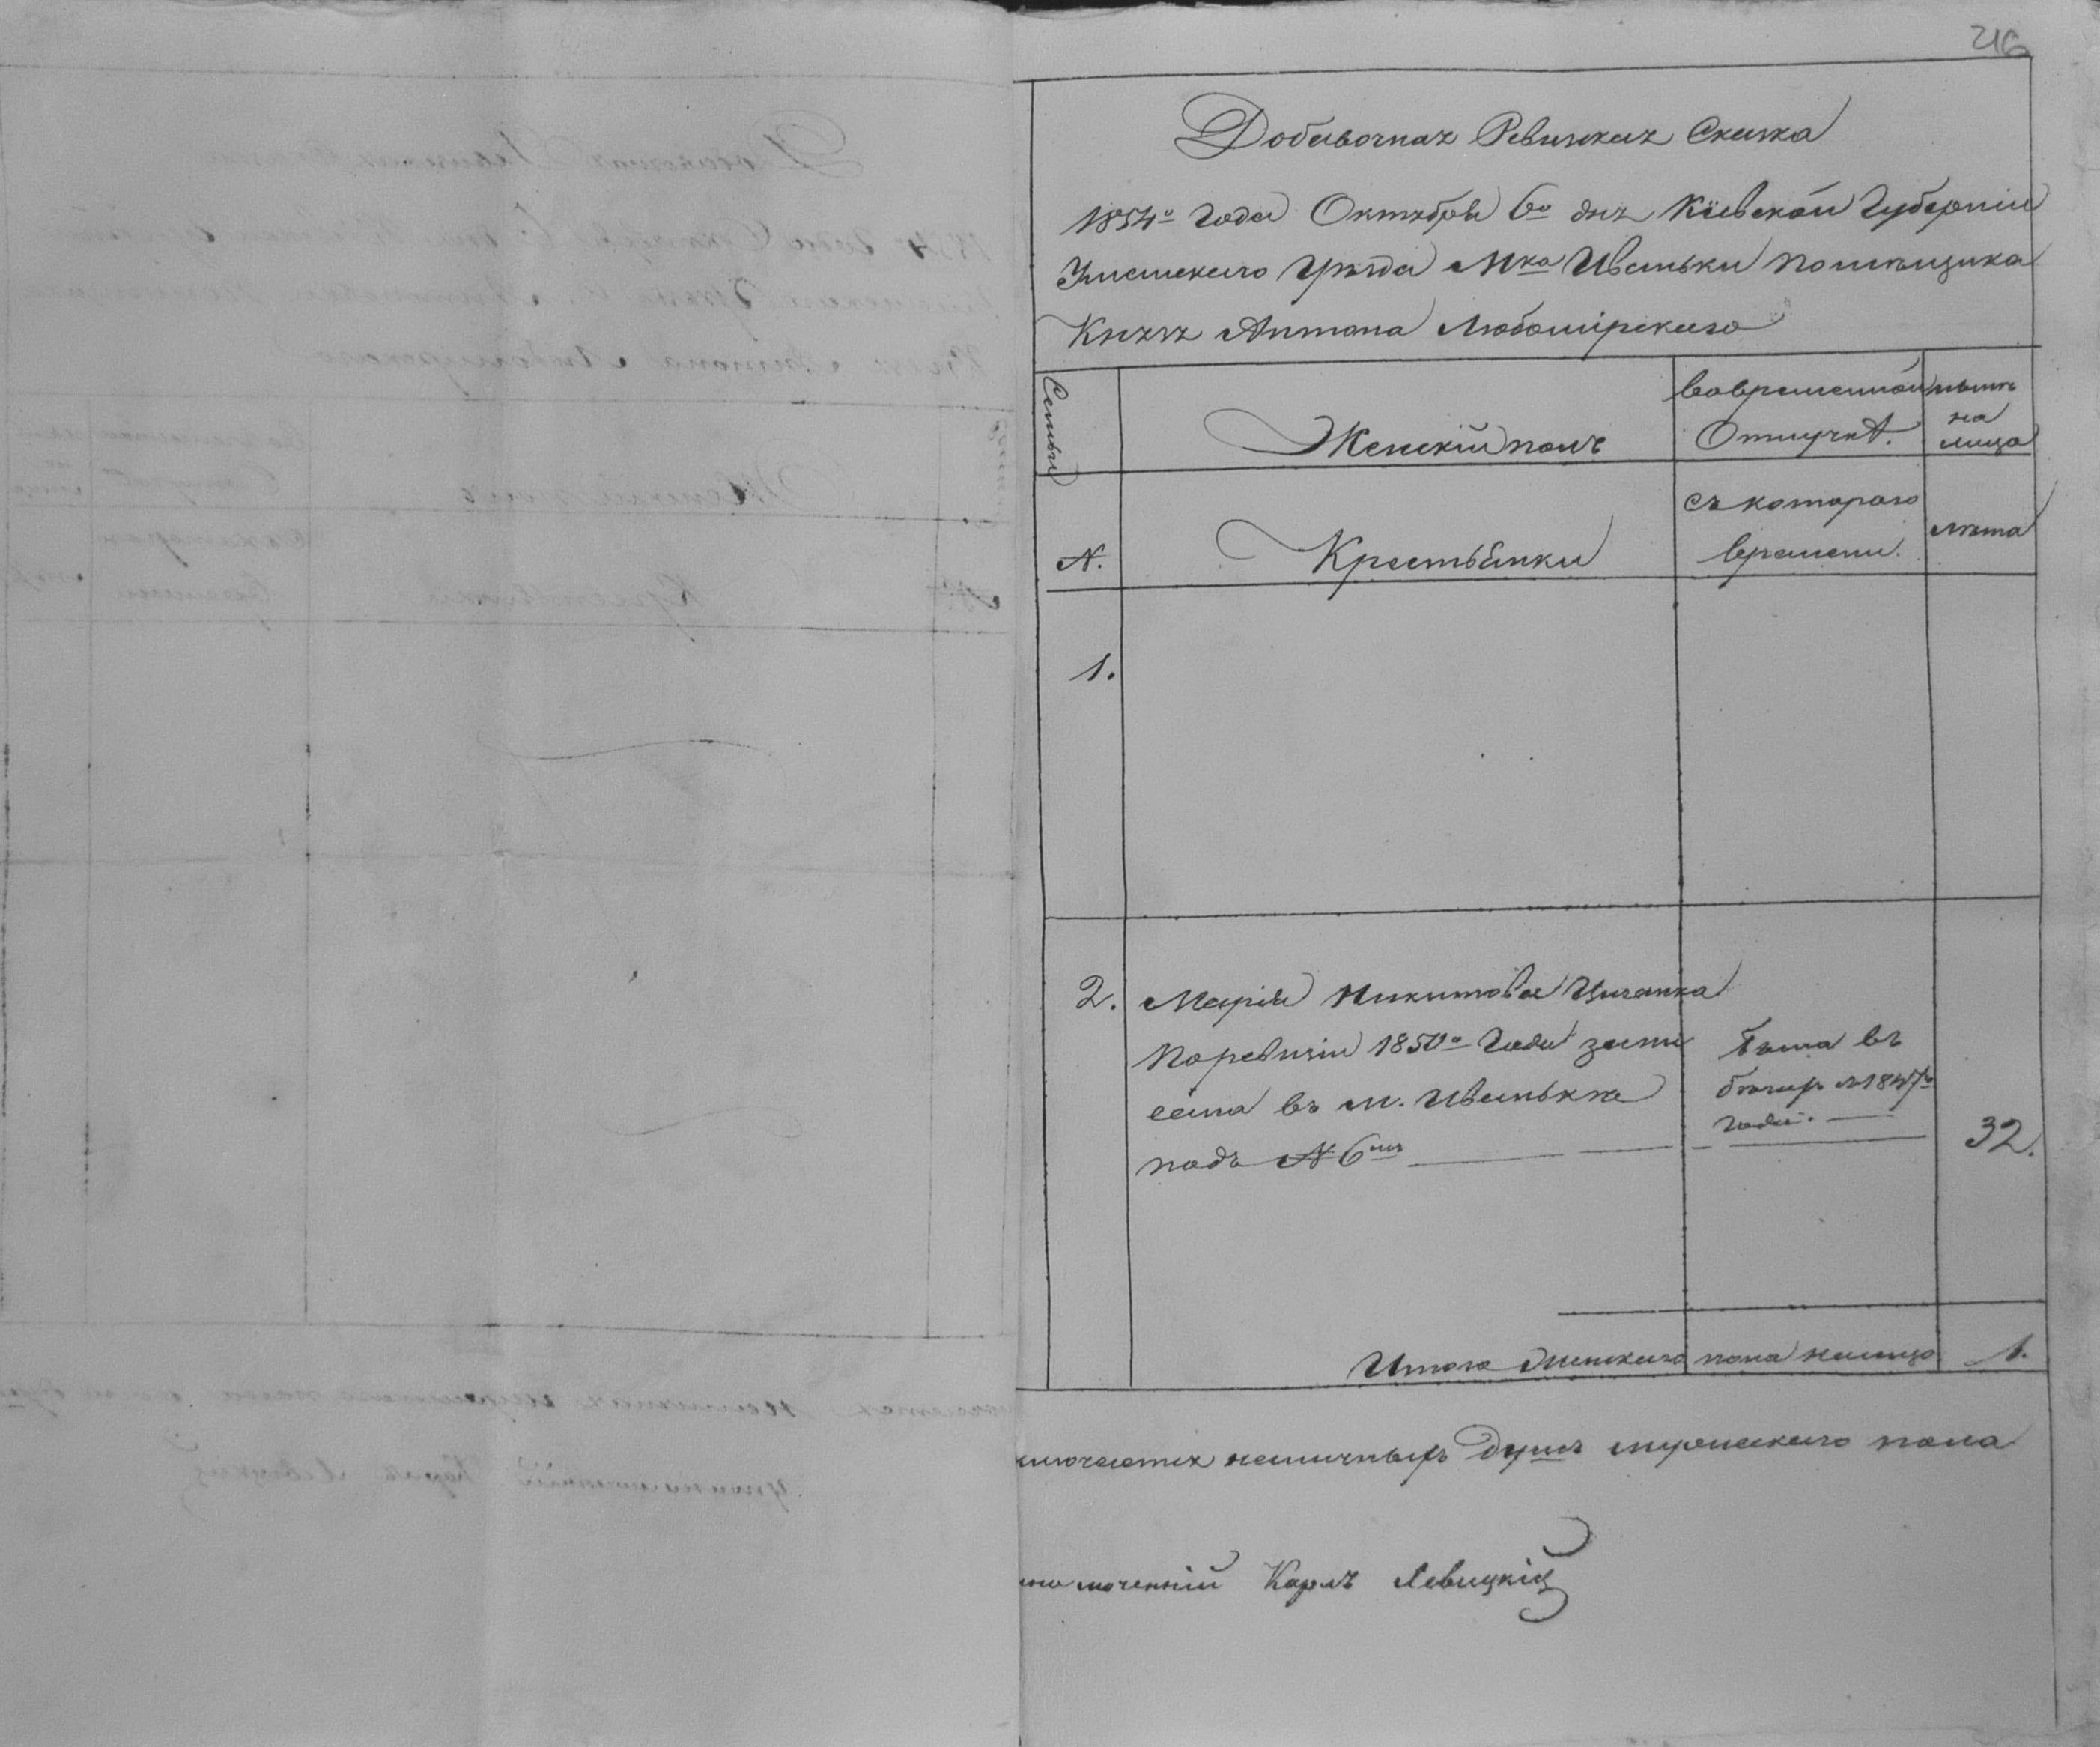 216
Добавочная Ревизкая Сказка
1854го Года Октября 6го дня Кіевской Губерніи
Уманскаго Уѣзда Мка Иваньки помѣщика
Князя Антона Любомірскаго
Семьи
Женскій полъ
Вовременной
Отлучкѣ.
нынѣ
на
лицо
N.
Крестьянки
съ котораго
времени.
лѣта
1.
2. Марія Никитова Цыганка
Поревизіи 1850го Года запи
сана въ м. Иванькѣ
подъ N 6мъ
была въ
бѣгахъ 1847го
года.
32.
Итого женскаго пола налицо 1.
наличныхъ Душъ мужескаго пола
моченній Карлъ Левицкій